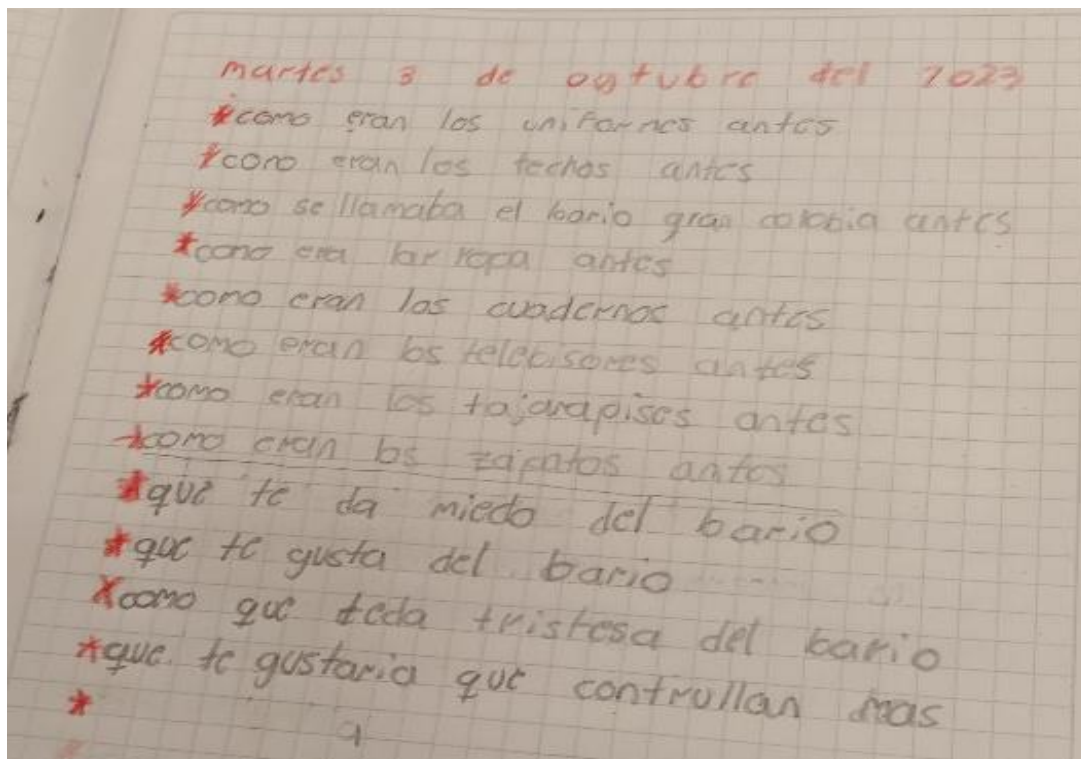 martes 3 de ogtubre del 2023
*como eran los uniformes antes
*como eran los techos antes
*como se llamaba el bario gran colobia antes
*como era la ropa antes
*como eran los cuadernos antes
*como eran los telebisores antes
*como eran los tajarapises antes
*como eran los zapatos antes
*que te da miedo del bario
*que te gusta del bario
*como que teda tristesa del bario
*que te gustaria que controllan mas
*